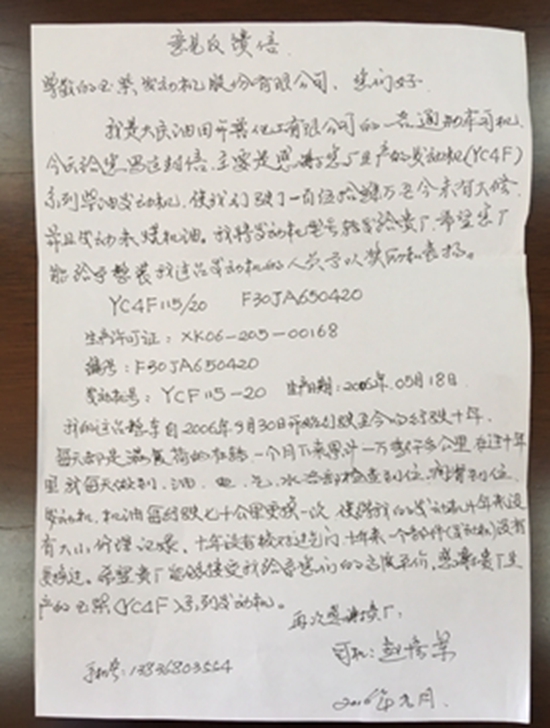 意见反馈信.
尊敬的玉柴发动机股份有限公司, 您们好
我是大庆油田 化工有限公司的一名通勤车司机,
今天给您写这封信,主要是感谢您厂生产的发动机(YC4F)
系列柴油发动机, 使我们 了一百 拾 万至今未有大修
并且发动未烧机油。我将发动机型号 给贵厂,希望您厂
能给予 装 这台发动机的人员予以奖励和表扬。
YC4F115/20 F30JA650420
生产许可证: XK06-205-00168
编号: F30JA650420
发动机号: YCF115-20 生产日期:2006年.05月18日
我的这台 车自2006年9月30日开始行驶至今 行驶十年.
每天都是满负荷的在跑,一个月下来累计一万 多公里在这十年
里 每天做到,油、电、气、水 检查到位,
发动机.机油每行驶七千公里更换一次,使得我的发动机十年来没
有大小修 记录. 十年没有校对过气门,十年来一个部件(发动机)没有
更换过。希望贵厂能够接受我给予您们的 评价,感谢贵厂生
产的玉柴(YC4F)系列发动机。
再次感谢贵厂,
司机:赵
手机号:13836803554
2016年 月.